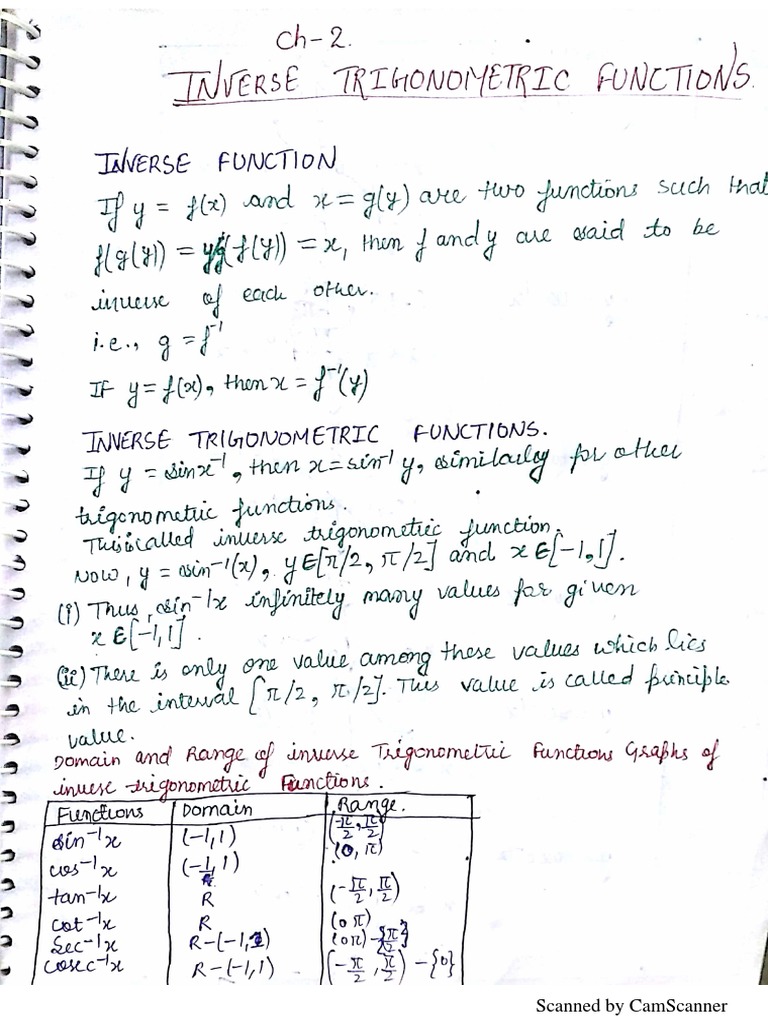 Ch-2.
INVERSE TRIGONOMETRIC FUNCTIONS.
INVERSE FUNCTION
If y = f(x) and x = g(y) are two functions such that
f(g(y)) = yg(f(y)) = x, then f and y are said to be
inverse of each other.
i.e., g = f⁻¹
If y = f(x), then x = f⁻¹(y)
INVERSE TRIGONOMETRIC FUNCTIONS.
If y = sinx⁻¹, then x = sin⁻¹ y, similarly for other
trigonometric functions.
This is called inverse trigonometric function.
Now, y = sin⁻¹(x), y∈[π/2, π/2] and x ∈[-1,1].
(i) Thus, sin⁻¹x infinitely many values for given
x ∈[-1,1].
(ii) There is only one value among these values which lies
in the interval [π/2, π/2]. This value is called principle
value.
Domain and Range of inverse Trigonometric Functions Graphs of
inverse trigonometric Functions.
Functions Domain Range.
sin⁻¹x (-1,1) (-π/2, π/2)
cos⁻¹x (-1,1) (0, π)
tan⁻¹x R (-π/2, π/2)
cot⁻¹x R (0 π)
Sec⁻¹x R-(-1,1) (0π)-{π/2}
cosec⁻¹x R-(-1,1) (-π/2, π/2) -{0}
Scanned by CamScanner